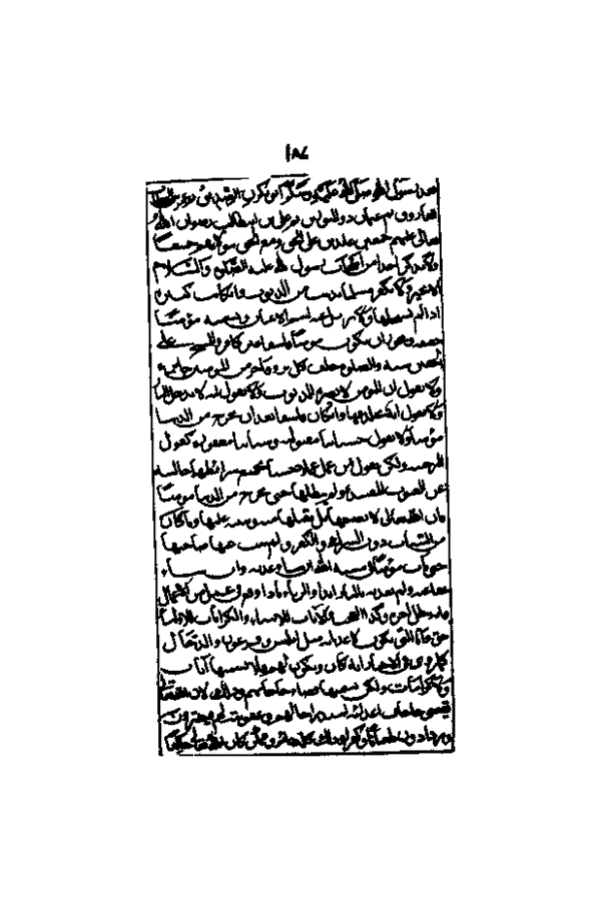 بعد رسول الله صلى الله عليه وسلم أبو بكر الصديق ثم عمر بن الخطاب
الفاروق ثم عثمان ذو النورين ثم علي بن أبي طالب رضوان الله
تعالى عليهم أجمعين عابدين على الحق ومع الحق نتولاهم جميعا
ولا نذكر أحدا من أصحاب رسول الله عليه الصلوة والسلام
إلا بخير ولا نكفر مسلما بذنب من الذنوب وإن كانت كبيرة
إذا لم يستحلها ولا نزيل عنه اسم الإيمان ونسميه مؤمنا
حقيقة ويجوز أن يكون مؤمنا فاسقا غير كافر والمسح على
الخفين سنة والصلوة خلف كل بر وفاجر من المؤمنين جائزة
ولا نقول إن المؤمن لا تضره الذنوب ولا نقول إنه لا يدخل النار
ولا نقول إنه يخلد فيها وإن كان فاسقا بعد أن يخرج من الدنيا
مؤمنا ولا نقول حسناتنا مقبولة وسيئاتنا مغفورة كقول
المرجئة ولكن نقول من عمل عملا حسنا بجميع شرائطها خالية
عن العيوب المفسدة ولم يبطلها حتى خرج من الدنيا مؤمنا
فإن الله تعالى لا يضيعها بل يقبلها منه ويثيبه عليها وما كان
من السيئات دون الشرك والكفر ولم يتب عنها صاحبها
حتى مات مؤمنا في مشيئة الله إن شاء عذبه وإن شاء
عفا عنه ولم يعذبه بالنار أبدا والرياء إذا وقع في عمل من الأعمال
فإنه يبطل أجره وكذا العجب والآيات للأنبياء والكرامات للأولياء
حق فأما التي تكون لأعدائه مثل إبليس وفرعون والدجال
كما روي في الأخبار أنه كان ويكون لهم لا نسميها آيات
ولا كرامات ولكن نسميها قضاء حاجاتهم وذلك لأن الله تعالى
يقضي حاجات أعدائه استدراجا لهم وعقوبة لهم فيغترون
ويزدادون طغيانا وكفرا وذلك كله جائز وممكن كان الله تعالى خالقا